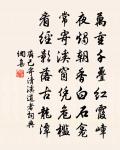 萬重千疊紅霞嶂
夜燭朝香白石龕
常寄溪窗凭危檻
看經影落古龍潭
廣巳寄清溪道者詞典
網集